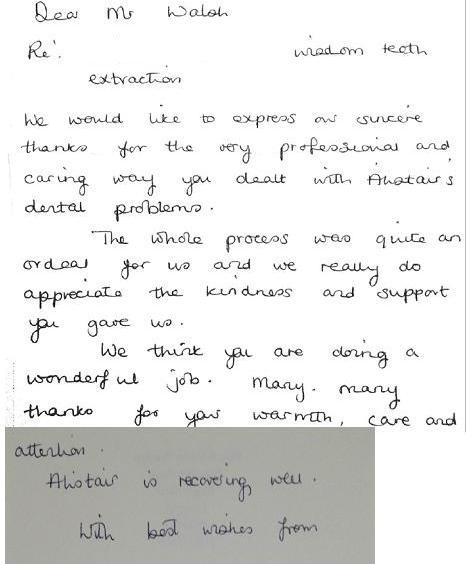 Dear Mr Walsh
Re: wisdom teeth
extraction
We would like to express our sincere
thanks for the very professional and
caring way you dealt with Alistair's
dental problems.
The whole process was quite an
ordeal for us and we really do
appreciate the kindness and support
you gave us.
We think you are doing a
wonderful job. Many. many
thanks for your warmth, care and
attention.
Alistair is recovering well.
With best wishes from